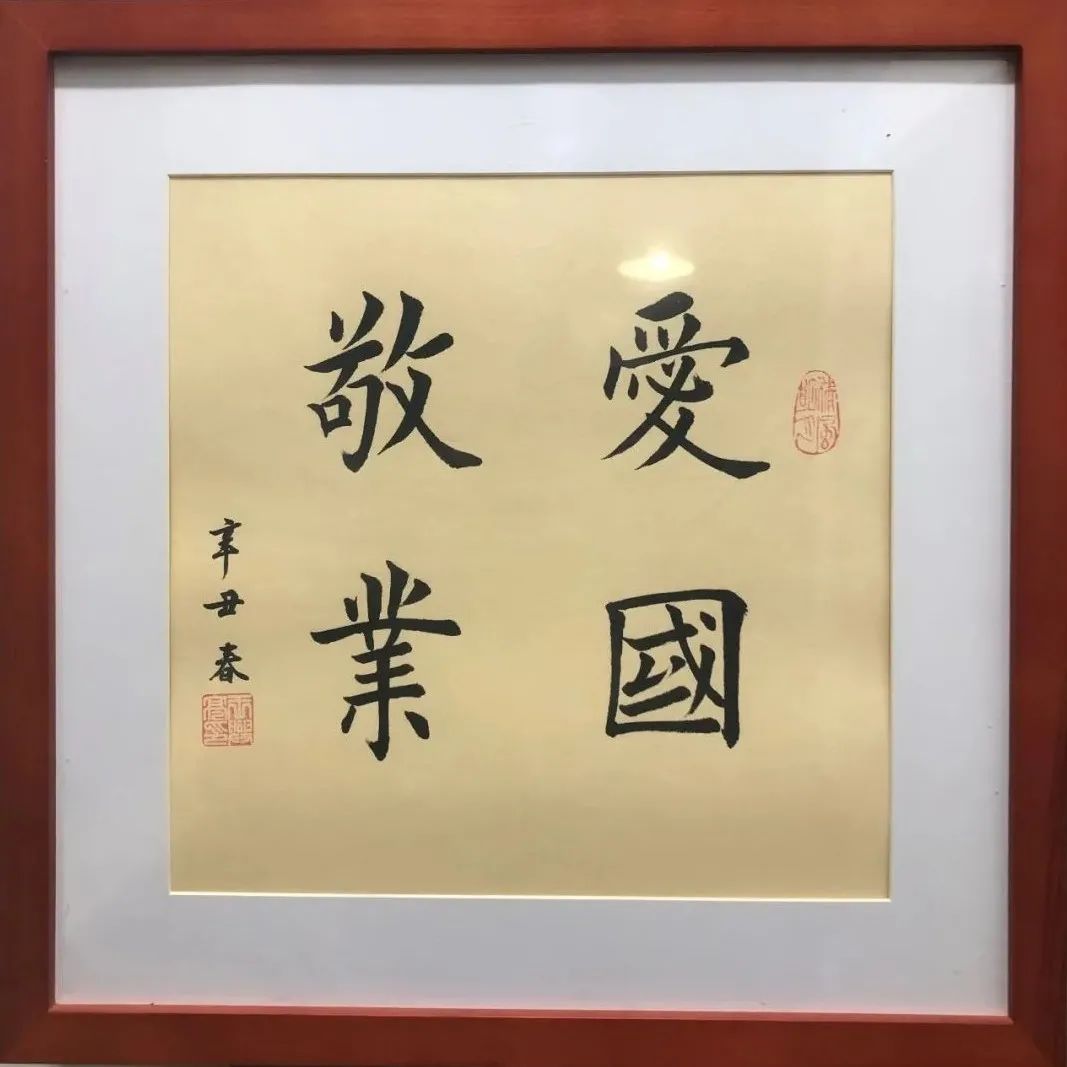 愛國
敬業
辛丑春